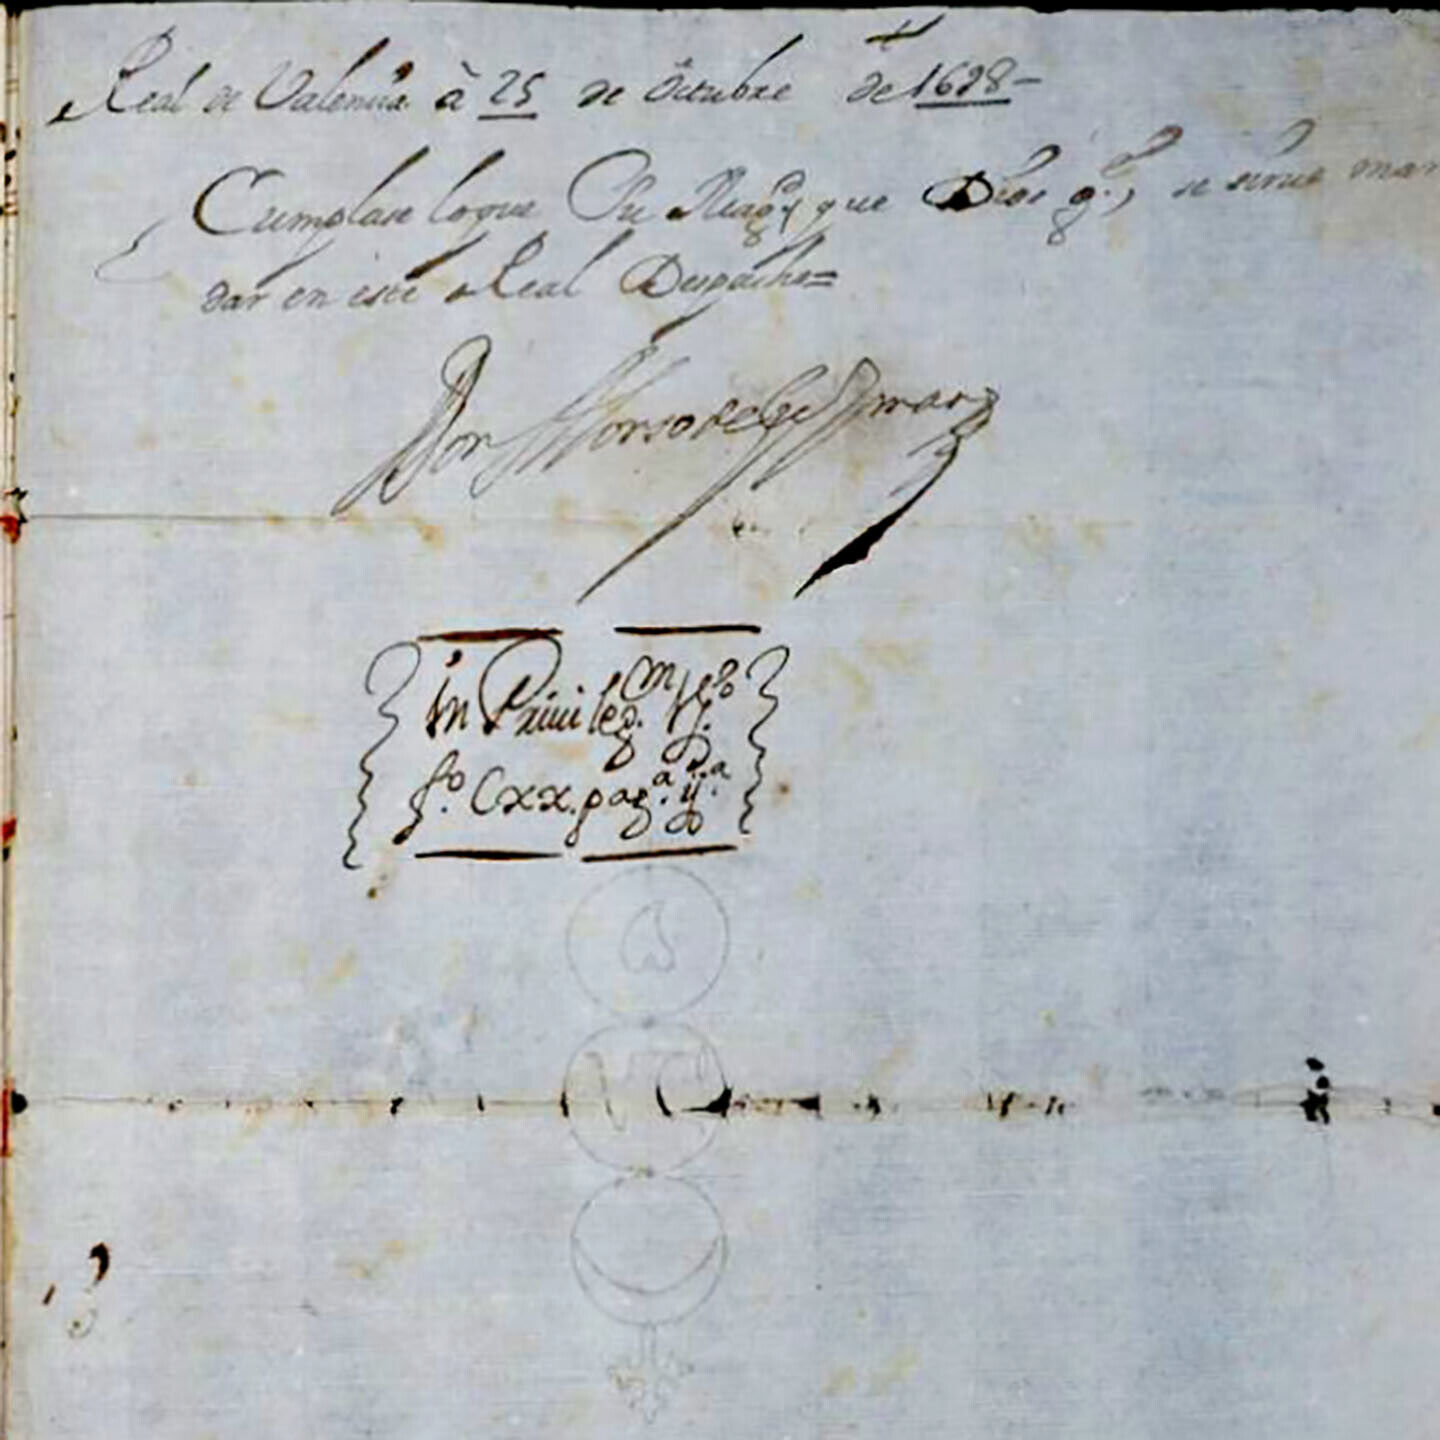 Real de Valencia à 25 de Octubre de 1698-
Cumplase loque Su Magd, que Dios g.e, se sirue man
dar en este Real Despacho=
Don Alonso de Guzman
In Priuileg.m
f.o Cxx. pag.a ij.a